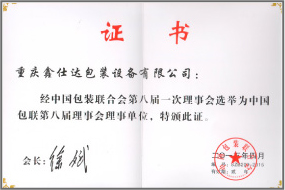 证 书
重庆鑫仕达包装设备有限公司：
经中国包装联合会第八届一次理事会选举为中国
包联第八届理事会理事单位，特颁此证。
会长：徐斌